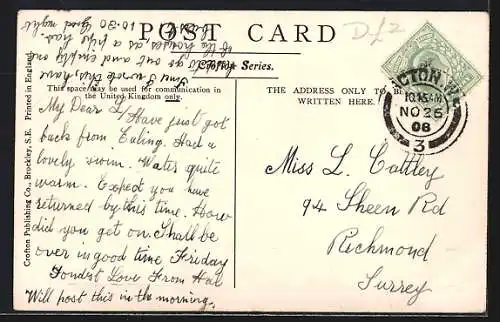 POST CARD
D £2
Crofton Series.
This space may be used for communication in
the United Kingdom only.
THE ADDRESS ONLY TO BE
WRITTEN HERE.
Crofton Publishing Co., Brockley, S.E. Printed in England.
ACTON W.
10.15 AM
NO 25
08
3
My Dear L/
Have just got
back from Ealing. Had a
lovely swim. Water quite
warm. Expect you have
returned by this time. How
did you get on. Shall be
over in good time Friday
Fondest Love From Hal
Will post this in the morning.
Time I wrote this
go out and
to the houses as a
10.30 Good night
Miss L. Cattley
94 Sheen Rd
Richmond
Surrey